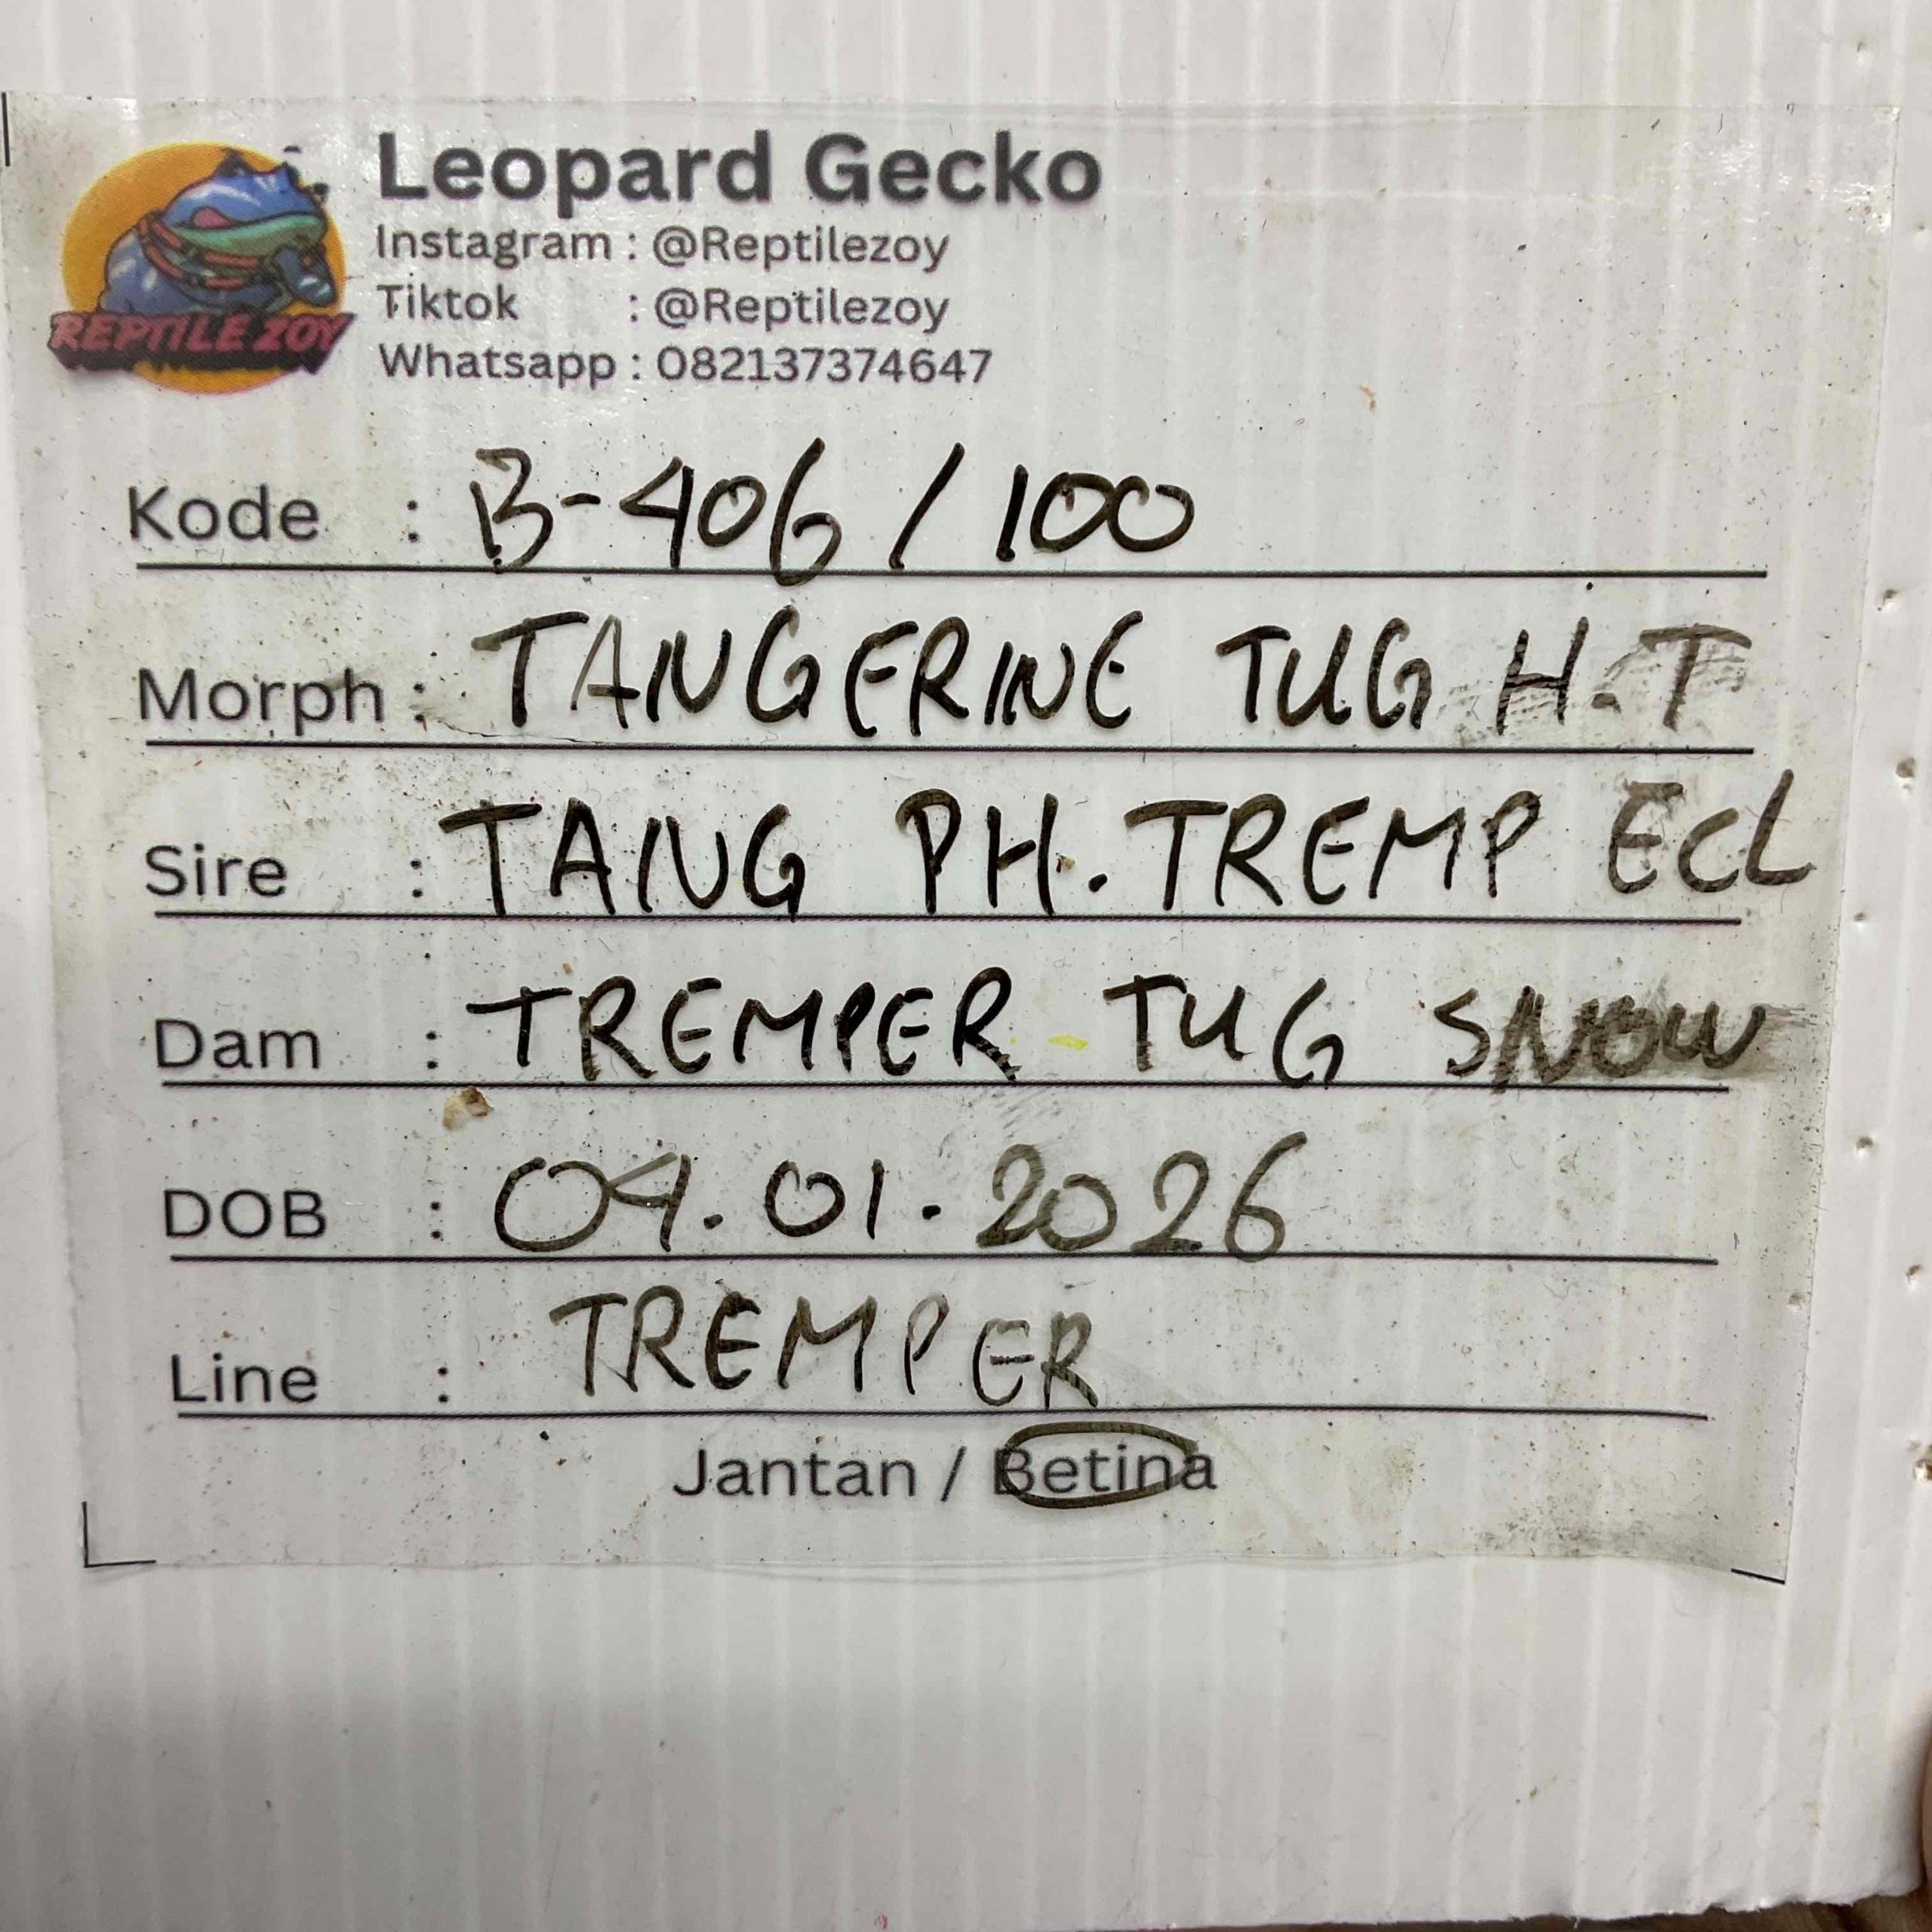 REPTILE ZOY
Leopard Gecko
Instagram : @Reptilezoy
Tiktok : @Reptilezoy
Whatsapp : 082137374647
Kode : B-406 / 100
Morph : TANGERINE TUG H.T
Sire : TANG PH. TREMP ECL
Dam : TREMPER TUG SNOW
DOB : 04.01.2026
Line : TREMPER
Jantan / Betina